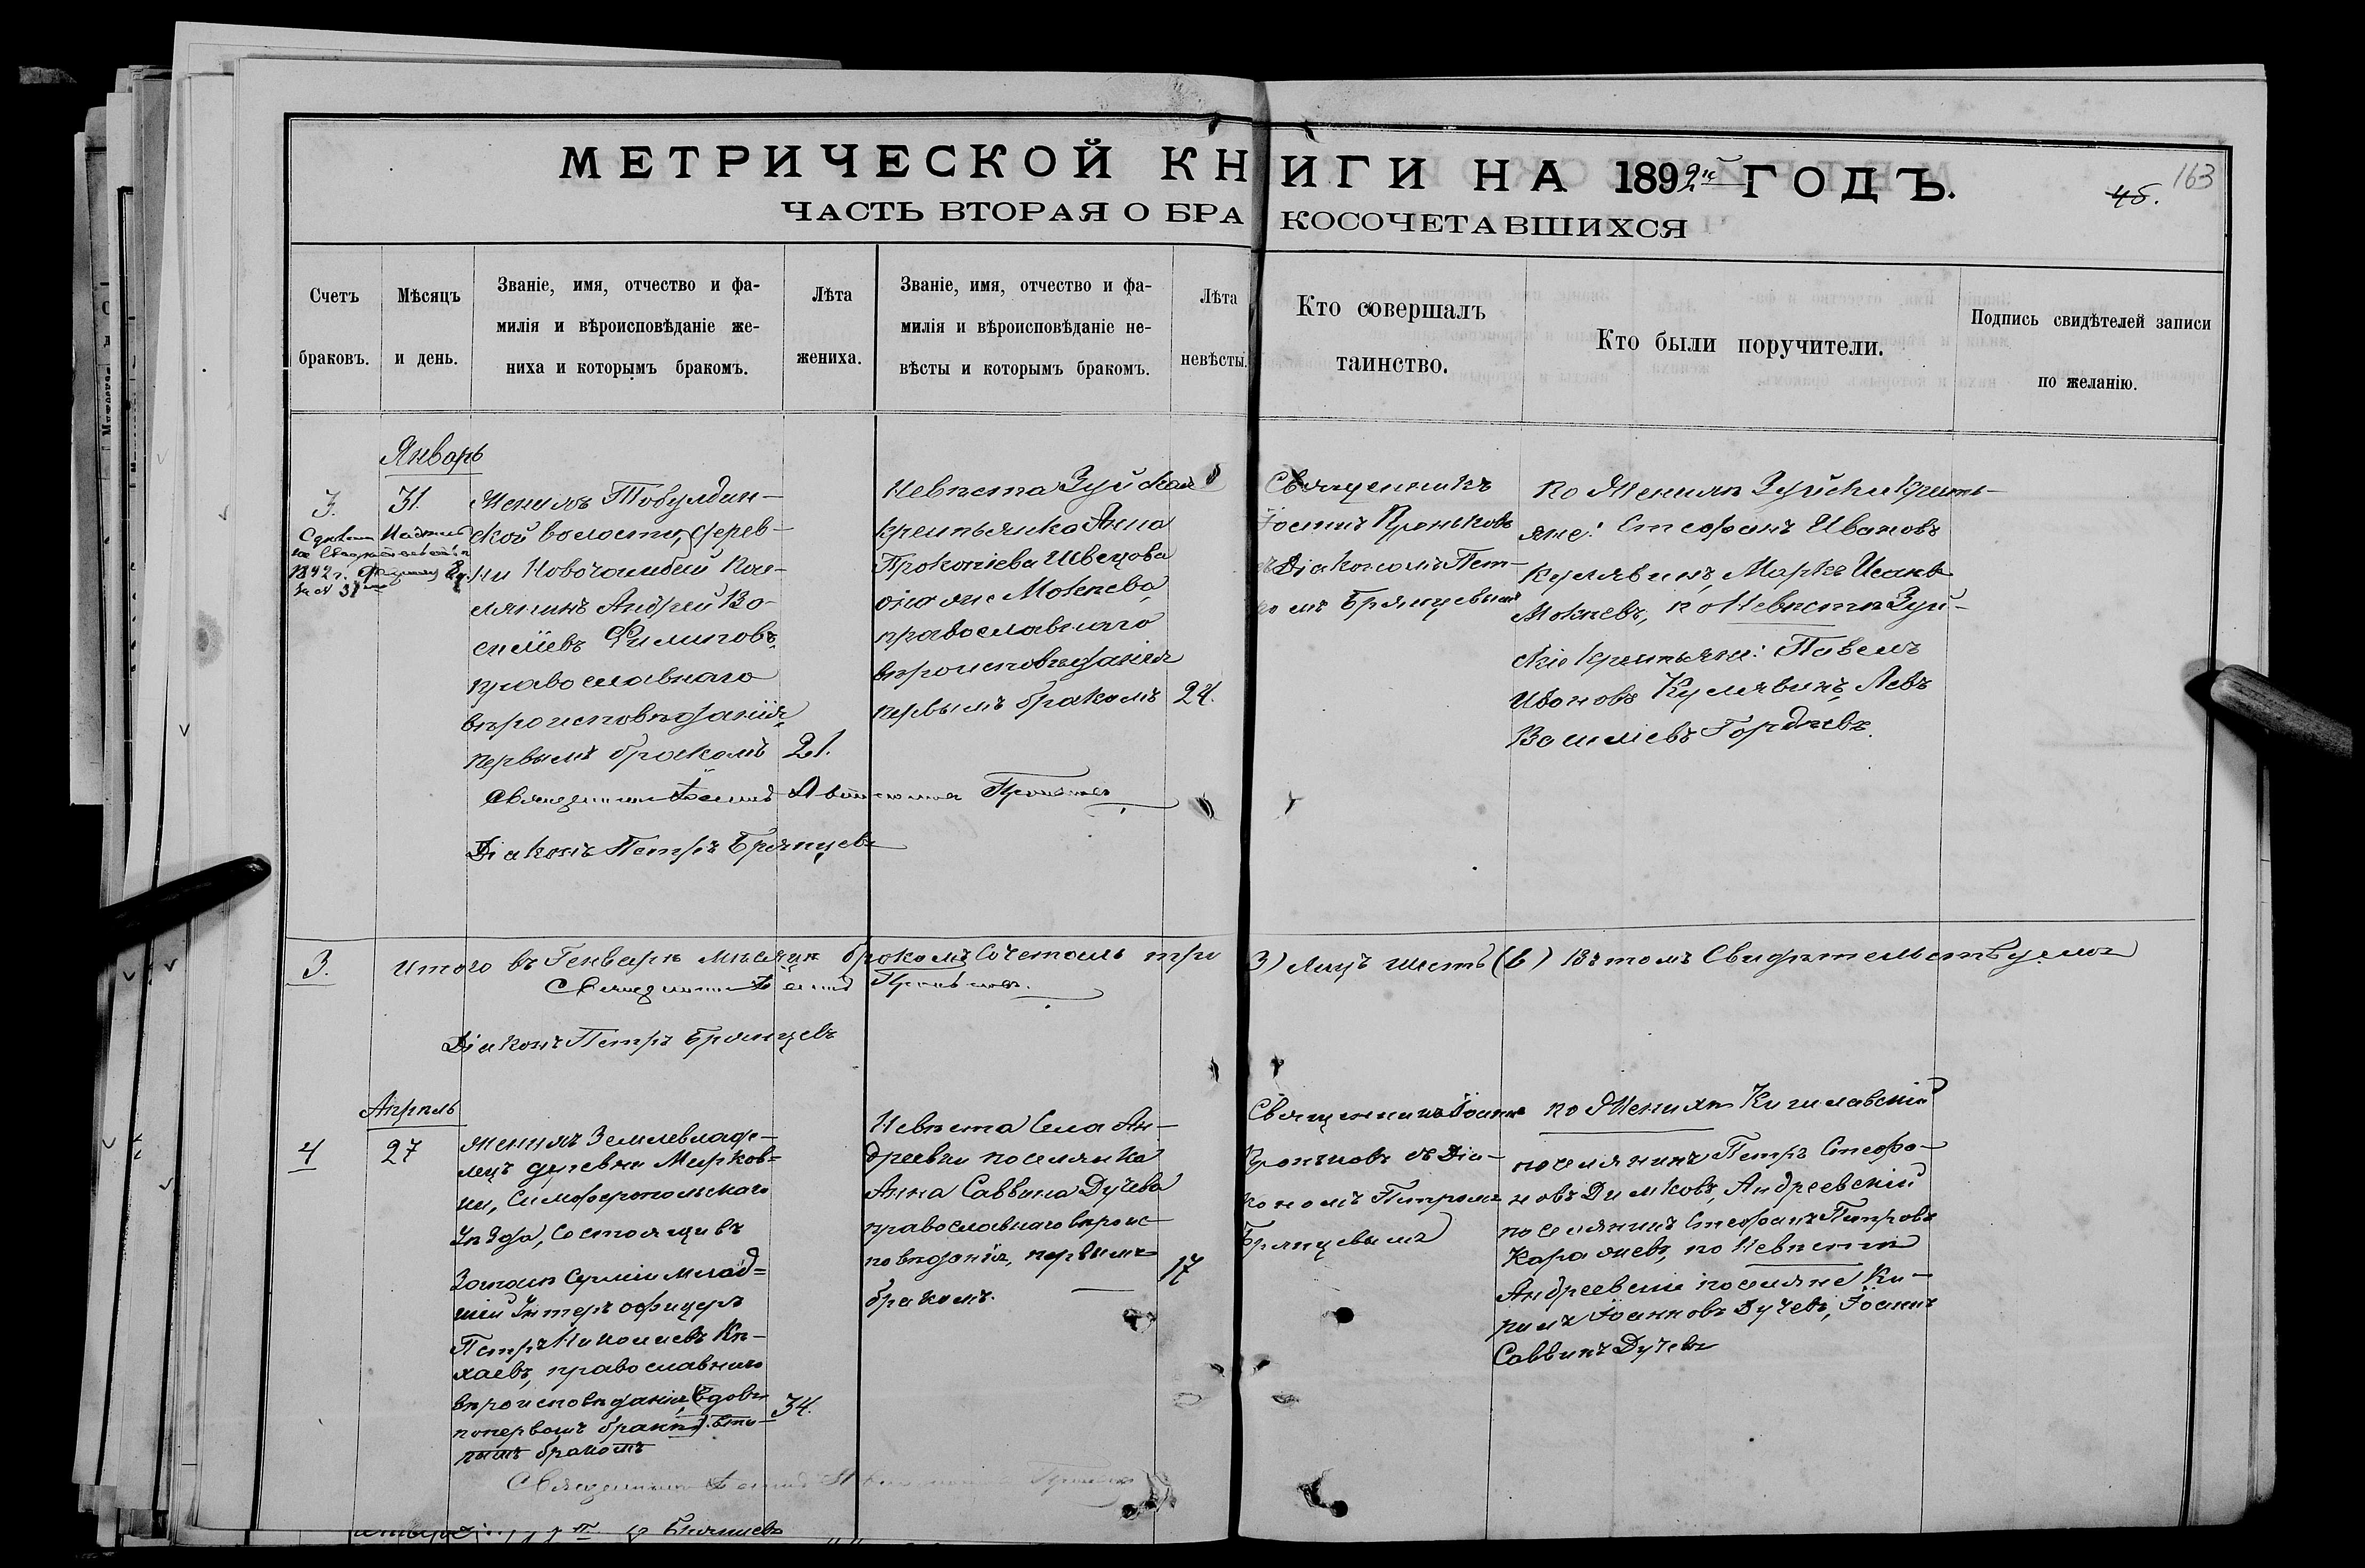 МЕТРИЧЕСКОЙ КНИГИ НА 1892й ГОДЪ.
163
45.
ЧАСТЬ ВТОРАЯ О БРАКОСОЧЕТАВШИХСЯ
Счетъ
браковъ.
Мѣсяцъ
и день.
Званіе, имя, отчество и фа-
милія и вѣроисповѣданіе же-
ниха и которымъ бракомъ.
Лѣта
жениха.
Званіе, имя, отчество и фа-
милія и вѣроисповѣданіе не-
вѣсты и которымъ бракомъ.
Лѣта
невѣсты.
Кто совершалъ
таинство.
Кто были поручители.
Подпись свидѣтелей записи
по желанію.
Январь
3.
31.
Женихъ Тобулдин-
ской волости, дерев-
ни Новочалибай Посе-
лянинъ Андрей Ва-
силіевъ Филиповъ,
православнаго
вѣроисповѣданія,
первымъ бракомъ
21.
Невѣста Зуйская
крестьянка Анна
Прокопіева Швецова
она же Мокѣева,
православнаго
вѣроисповѣданія
первымъ бракомъ
24.
Священникъ
Іоаннъ Проньковъ
съ Діакономъ Пет-
ромъ Брянцевымъ
По Женихѣ Зуйски кресть-
яне: Стефанъ Ивановъ
Кулявинъ, Маркъ Исаевъ
Мокѣевъ, по Невѣстѣ Зуй-
скіе крестьяне: Павелъ
Ивановъ Кулявинъ, Левъ
Василіевъ Гордѣевъ.
Священникъ Іоаннъ Проньковъ
Діаконъ Петръ Брянцевъ
3.
Итого въ Генварѣ мѣсяцѣ бракомъ Сочеталъ три (3) лицъ шесть (6) Въ томъ Свидѣтельствуемъ
Священникъ Іоаннъ Проньковъ.
Діаконъ Петръ Брянцевъ
Апрѣль
4
27
Женихъ Землевладѣ-
лецъ деревни Мирков-
ки, Симферопольскаго
Уѣзда, состоящи въ
Запасѣ Арміи млад-
шій Унтеръ офицеръ
Петръ Николаевъ Ки-
хаевъ, православнаго
вѣроисповѣданія, Вдовъ
по первомъ бракѣ, вто-
рымъ бракомъ
34.
Невѣста Села Ан-
дреевки поселянка
Анна Саввина Дучева
православнаго вѣроис-
повѣданія, первымъ
бракомъ.
17
Священникъ Іоаннъ
Проньковъ съ Діа-
кономъ Петромъ
Брянцевымъ
по Женихѣ Кишлавскій
поселянинъ Петръ Стефа-
новъ Димковъ, Андреевскій
поселянинъ Стефанъ Петровъ
Каражиевъ, по Невѣстѣ
Андреевскіе поселяне Ки-
рилъ Іоанновъ Дучевъ, Іоаннъ
Саввинъ Дучевъ
Священникъ Іоаннъ Проньковъ
Брянцевъ